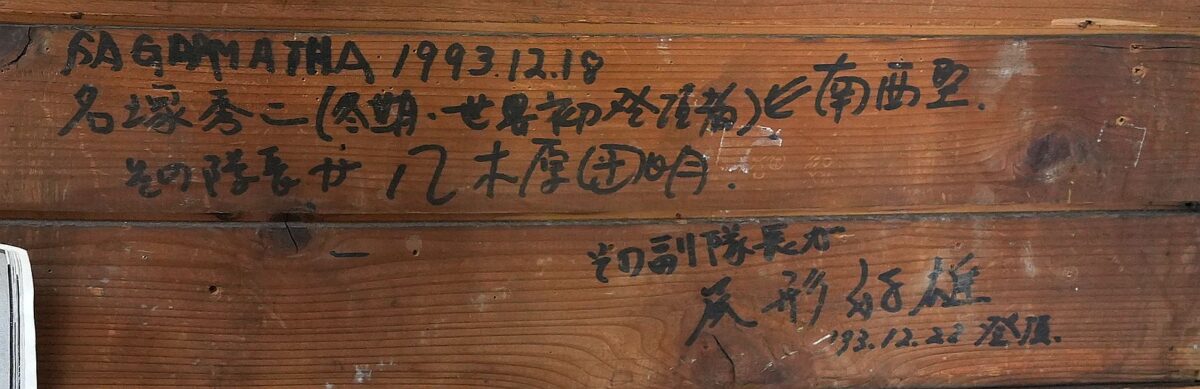 SAGARMATHA 1993.12.18
名塚秀二(冬期・世界初登頂者)と南西壁.
その隊長が 八木原圀明.
その副隊長が
尾形好雄
'93.12.22 登頂.